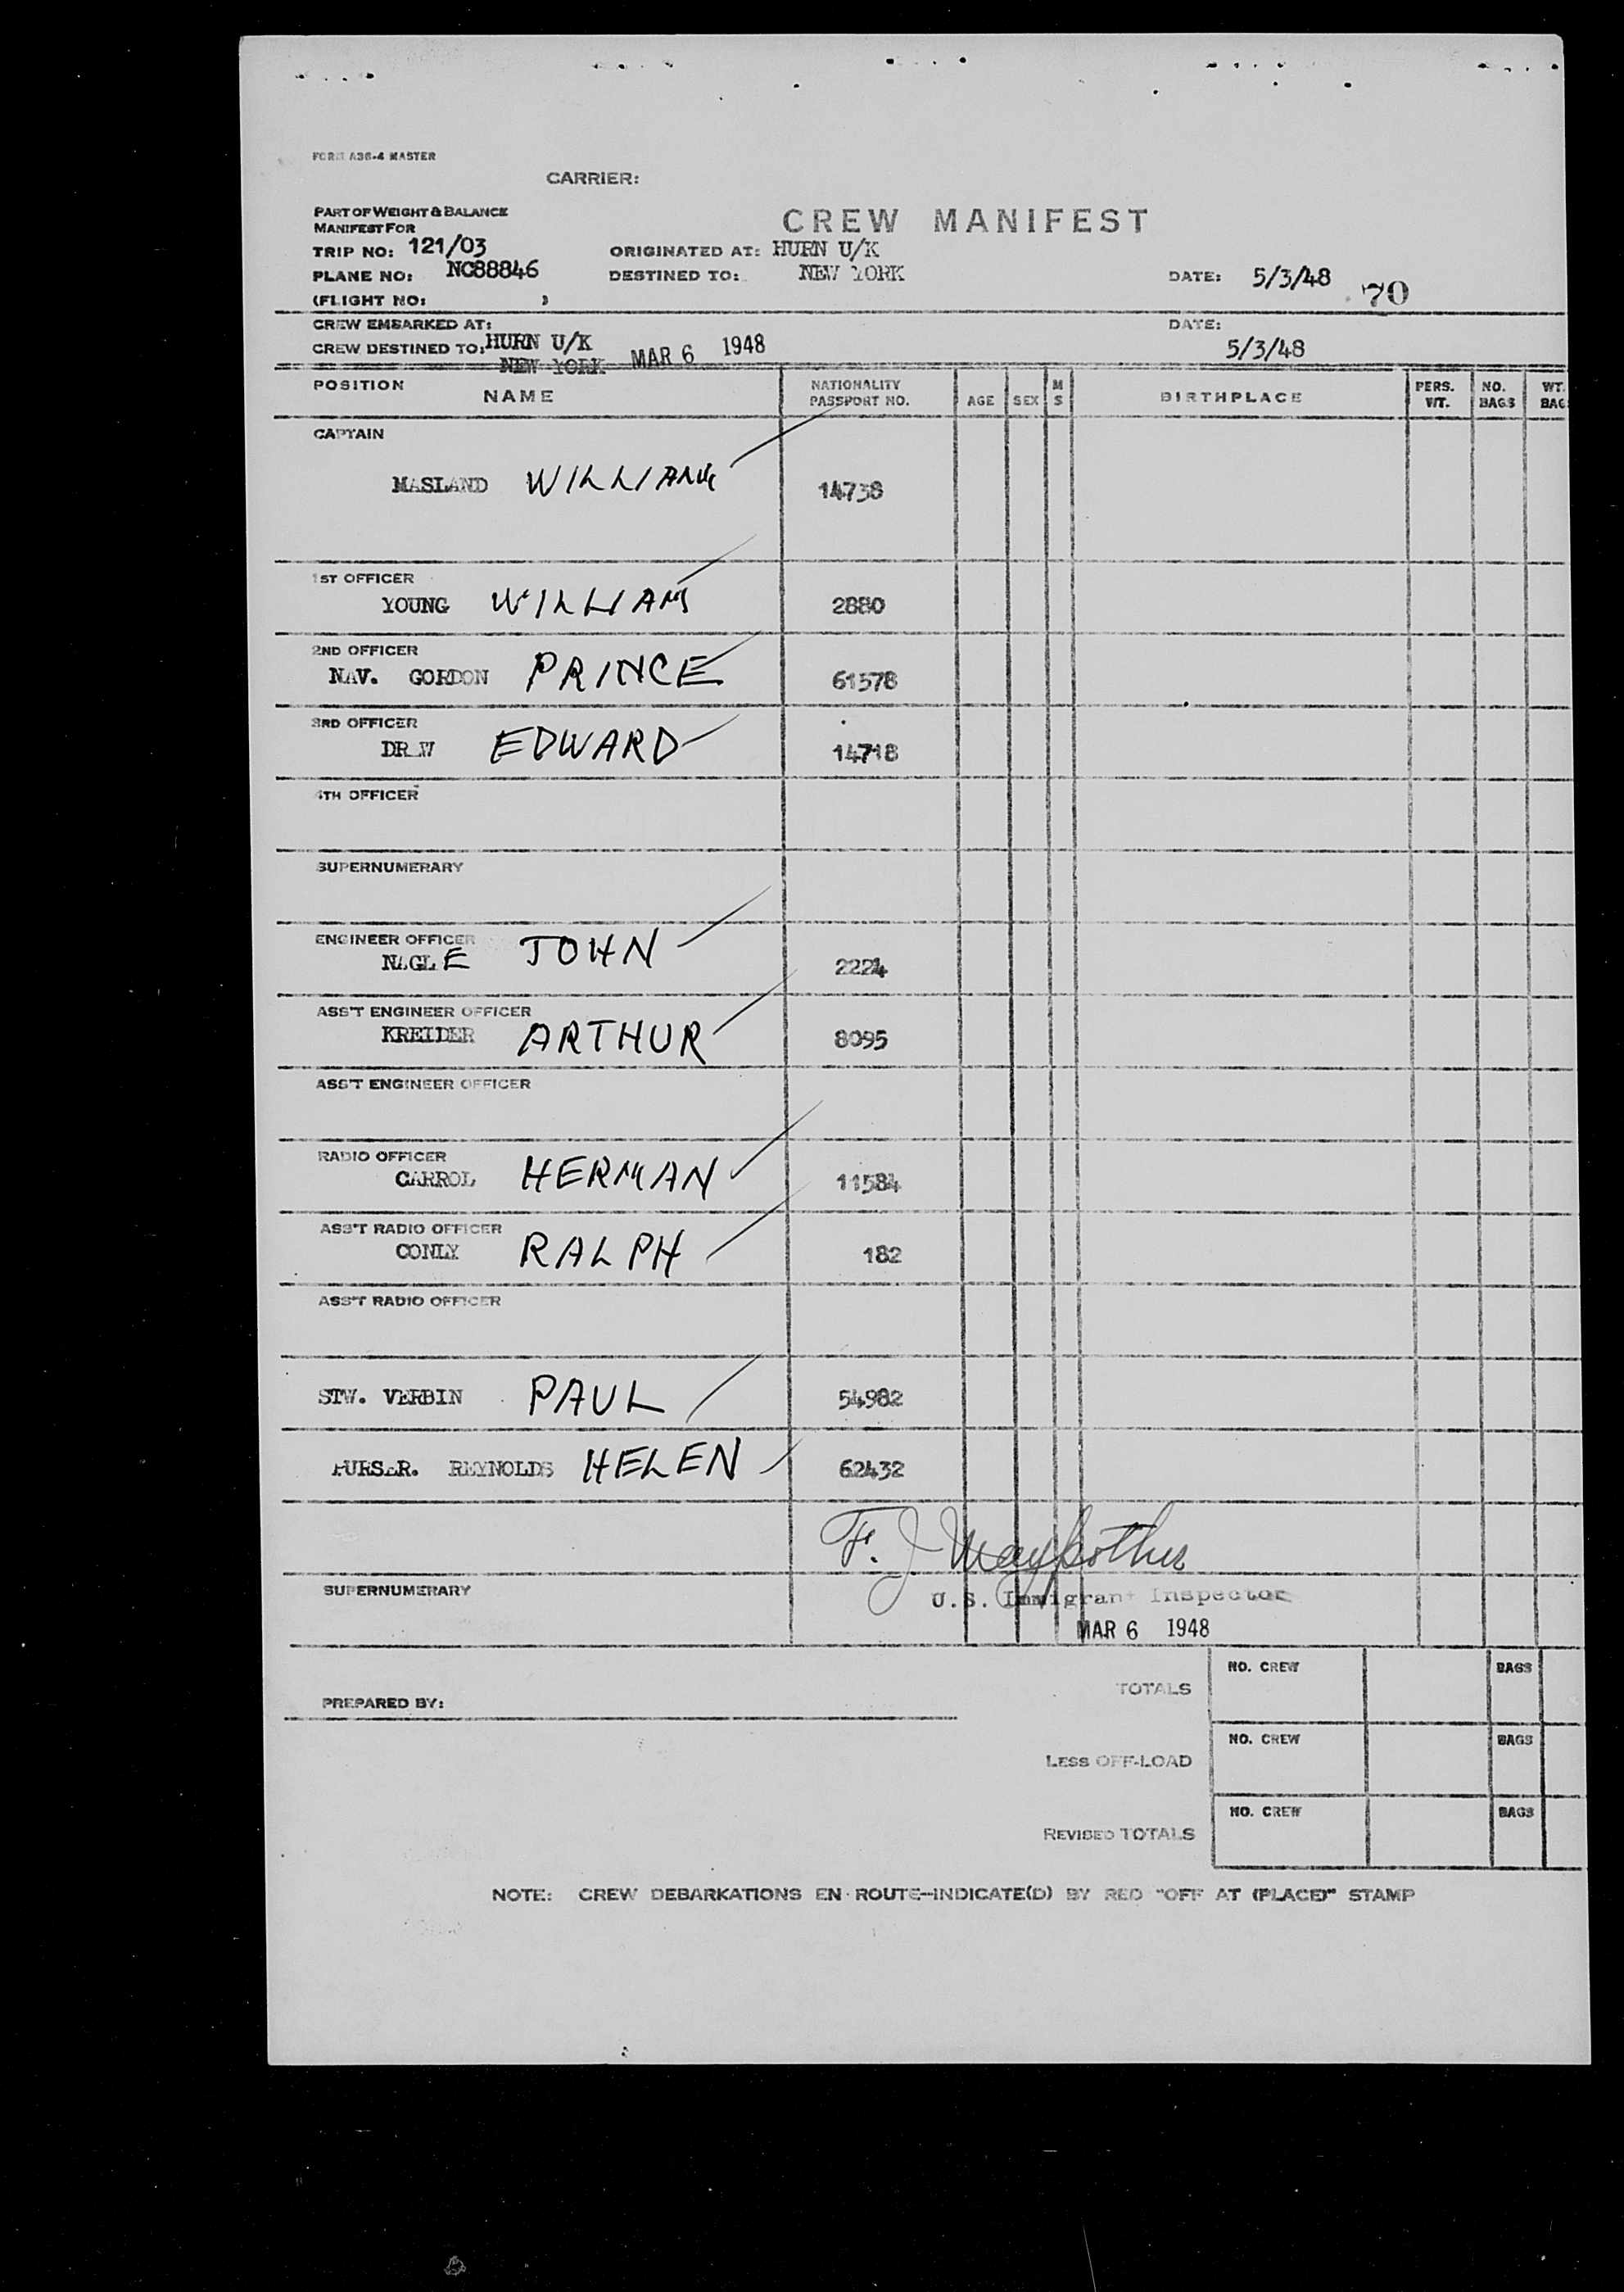 FORM A36-4 MASTER
CARRIER:
PART OF WEIGHT & BALANCE
MANIFEST FOR
CREW MANIFEST
TRIP NO: 121/03 ORIGINATED AT: HURN U/K
PLANE NO: NC88846 DESTINED TO: NEW YORK DATE: 5/3/48
(FLIGHT NO: ) 70
CREW EMBARKED AT: HURN U/K DATE:
CREW DESTINED TO: NEW YORK MAR 6 1948 5/3/48
POSITION NAME NATIONALITY PASSPORT NO. AGE SEX M S BIRTHPLACE PERS. WT. NO. BAGS WT. BAG
CAPTAIN
MASLAND WILLIAM 14738
1ST OFFICER
YOUNG WILLIAM 2880
2ND OFFICER
NAV. GORDON PRINCE 61578
3RD OFFICER
DR W EDWARD 14718
4TH OFFICER
SUPERNUMERARY
ENGINEER OFFICER
NAGLE JOHN 2224
ASS'T ENGINEER OFFICER
KREIDER ARTHUR 8095
ASS'T ENGINEER OFFICER
RADIO OFFICER
CARROL HERMAN 11584
ASS'T RADIO OFFICER
CONLY RALPH 182
ASS'T RADIO OFFICER
STW. VERBIN PAUL 54982
PURSER. REYNOLDS HELEN 62432
F. J. Maybother
SUPERNUMERARY
U.S. Immigrant Inspector
MAR 6 1948
NO. CREW BAGS
TOTALS
PREPARED BY:
NO. CREW BAGS
LESS OFF-LOAD
NO. CREW BAGS
REVISED TOTALS
NOTE: CREW DEBARKATIONS EN ROUTE—INDICATE(D) BY RED "OFF AT (PLACE)" STAMP